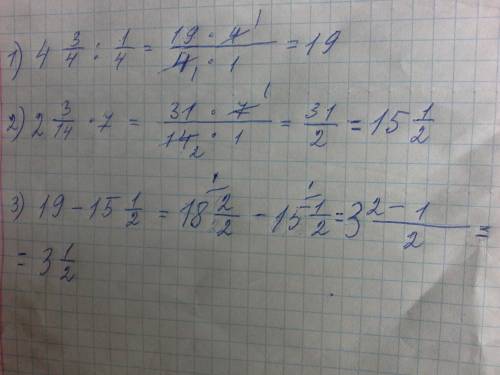 1) 4 3/4 : 1/4 = (19 · 4)/(4 · 1) = 19
2) 2 3/14 · 7 = (31 · 7)/(14 · 1) = 31/2 = 15 1/2
3) 19 - 15 1/2 = 18 2/2 - 15 1/2 = 3 (2 - 1)/2 =
= 3 1/2